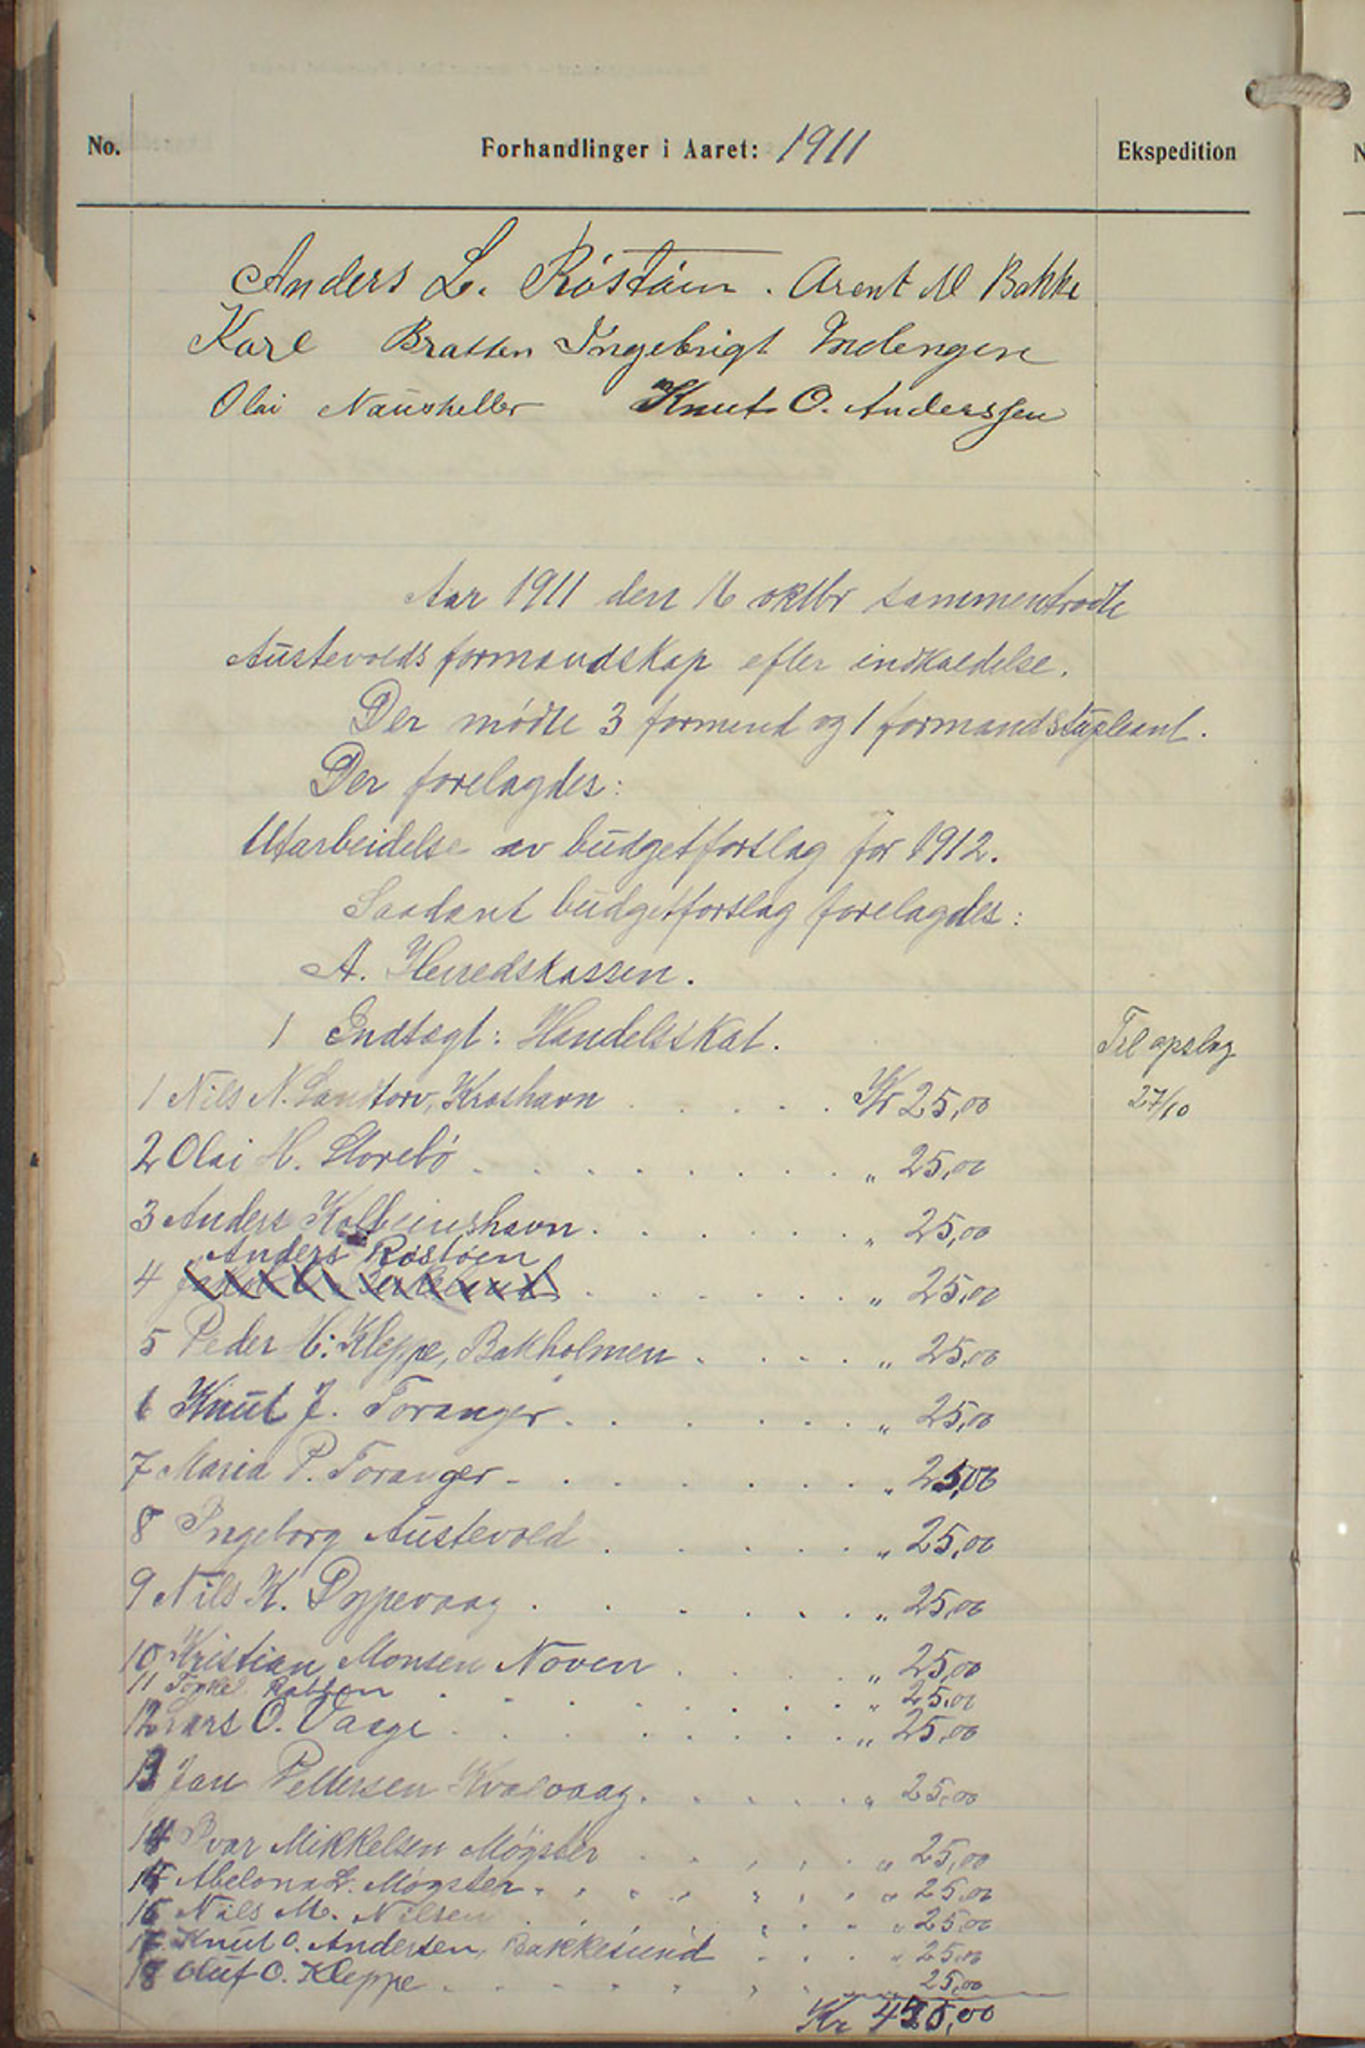 No. Forhandlinger i Aaret: 1911 Ekspedition
Anders L. Röstöen. Arent M Bakke
Karl Bratten Ingebrigt Indengen
Olai Naustheller Knut O. Anderssen
Aar 1911 den 16 oktbr sammentraadte
Austevolds formandskap efter indkaldelse.
Der mødte 3 formend og 1 formandsupleant.
Der forelagdes:
Utarbeidelse av budgetforslag for 1912.
Saadant budgetforslag forelagdes:
A. Herredskassen.
1 Indtægt: Handelsskat.
Til opslag
27/10
1 Nils N. Landtorv, Kroshavn Kr 25,00
2 Olai H. Storebö " 25,00
3 Anders Kolbeinshavn " 25,00
Anders Röstöen
4 " 25,00
5 Peder H. Kleppe, Bakholmen " 25,00
6 Knut J. Toranger " 25,00
7 Maria P. Toranger " 25,00
8 Ingeborg Austevold " 25,00
9 Nils K. Dypevaag " 25,00
10 Kristian Monsen Noven " 25,00
11 Torkel Rabben " 25,00
12 Lars O. Vaage " 25,00
13 Jan Pettersen Kvalvaag " 25,00
14 Ivar Mikkelsen Møgster " 25,00
15 Abelona L. Møgster " 25,00
16 Nils M. Nilsen " 25,00
17 Knut O. Andersen, Bakkesund " 25,00
18 Oluf O. Kleppe 25,00
Kr